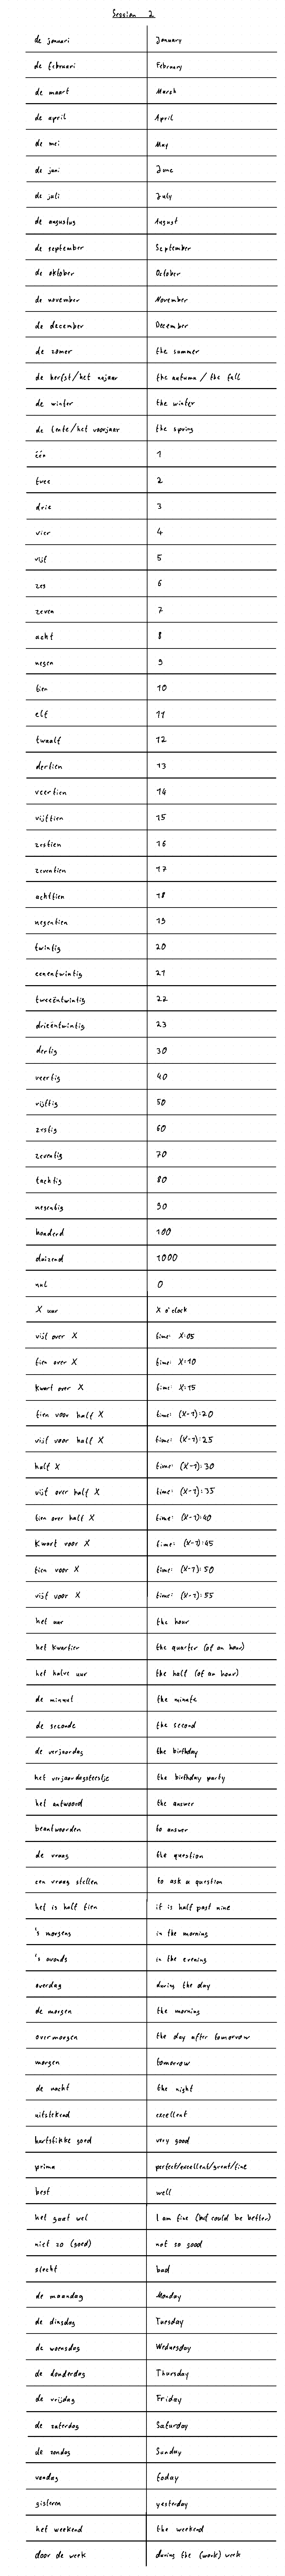 Session 2
de januari January
de februari February
de maart March
de april April
de mei May
de juni June
de juli July
de augustus August
de september September
de oktober October
de november November
de december December
de zomer the summer
de herfst/het najaar the autumn / the fall
de winter the winter
de lente/het voorjaar the spring
één 1
twee 2
drie 3
vier 4
vijf 5
zes 6
zeven 7
acht 8
negen 9
tien 10
elf 11
twaalf 12
dertien 13
veertien 14
vijftien 15
zestien 16
zeventien 17
achttien 18
negentien 19
twintig 20
eenentwintig 21
tweeëntwintig 22
drieëntwintig 23
dertig 30
veertig 40
vijftig 50
zestig 60
zeventig 70
tachtig 80
negentig 90
honderd 100
duizend 1000
nul 0
X uur X o'clock
vijf over X time: X:05
tien over X time: X:10
kwart over X time: X:15
tien voor half X time: (X-1):20
vijf voor half X time: (X-1):25
half X time: (X-1):30
vijf over half X time: (X-1):35
tien over half X time: (X-1):40
kwart voor X time: (X-1):45
tien voor X time: (X-1):50
vijf voor X time: (X-1):55
het uur the hour
het kwartier the quarter (of an hour)
het halve uur the half (of an hour)
de minuut the minute
de seconde the second
de verjaardag the birthday
het verjaardagsfeestje the birthday party
het antwoord the answer
beantwoorden to answer
de vraag the question
een vraag stellen to ask a question
het is half tien it is half past nine
's morgens in the morning
's avonds in the evening
overdag during the day
de morgen the morning
overmorgen the day after tomorrow
morgen tomorrow
de nacht the night
uitstekend excellent
hartstikke goed very good
prima perfect/excellent/great/fine
best well
het gaat wel I am fine (but could be better)
niet zo (goed) not so good
slecht bad
de maandag Monday
de dinsdag Tuesday
de woensdag Wednesday
de donderdag Thursday
de vrijdag Friday
de zaterdag Saturday
de zondag Sunday
vandaag today
gisteren yesterday
het weekend the weekend
door de week during the (work) week